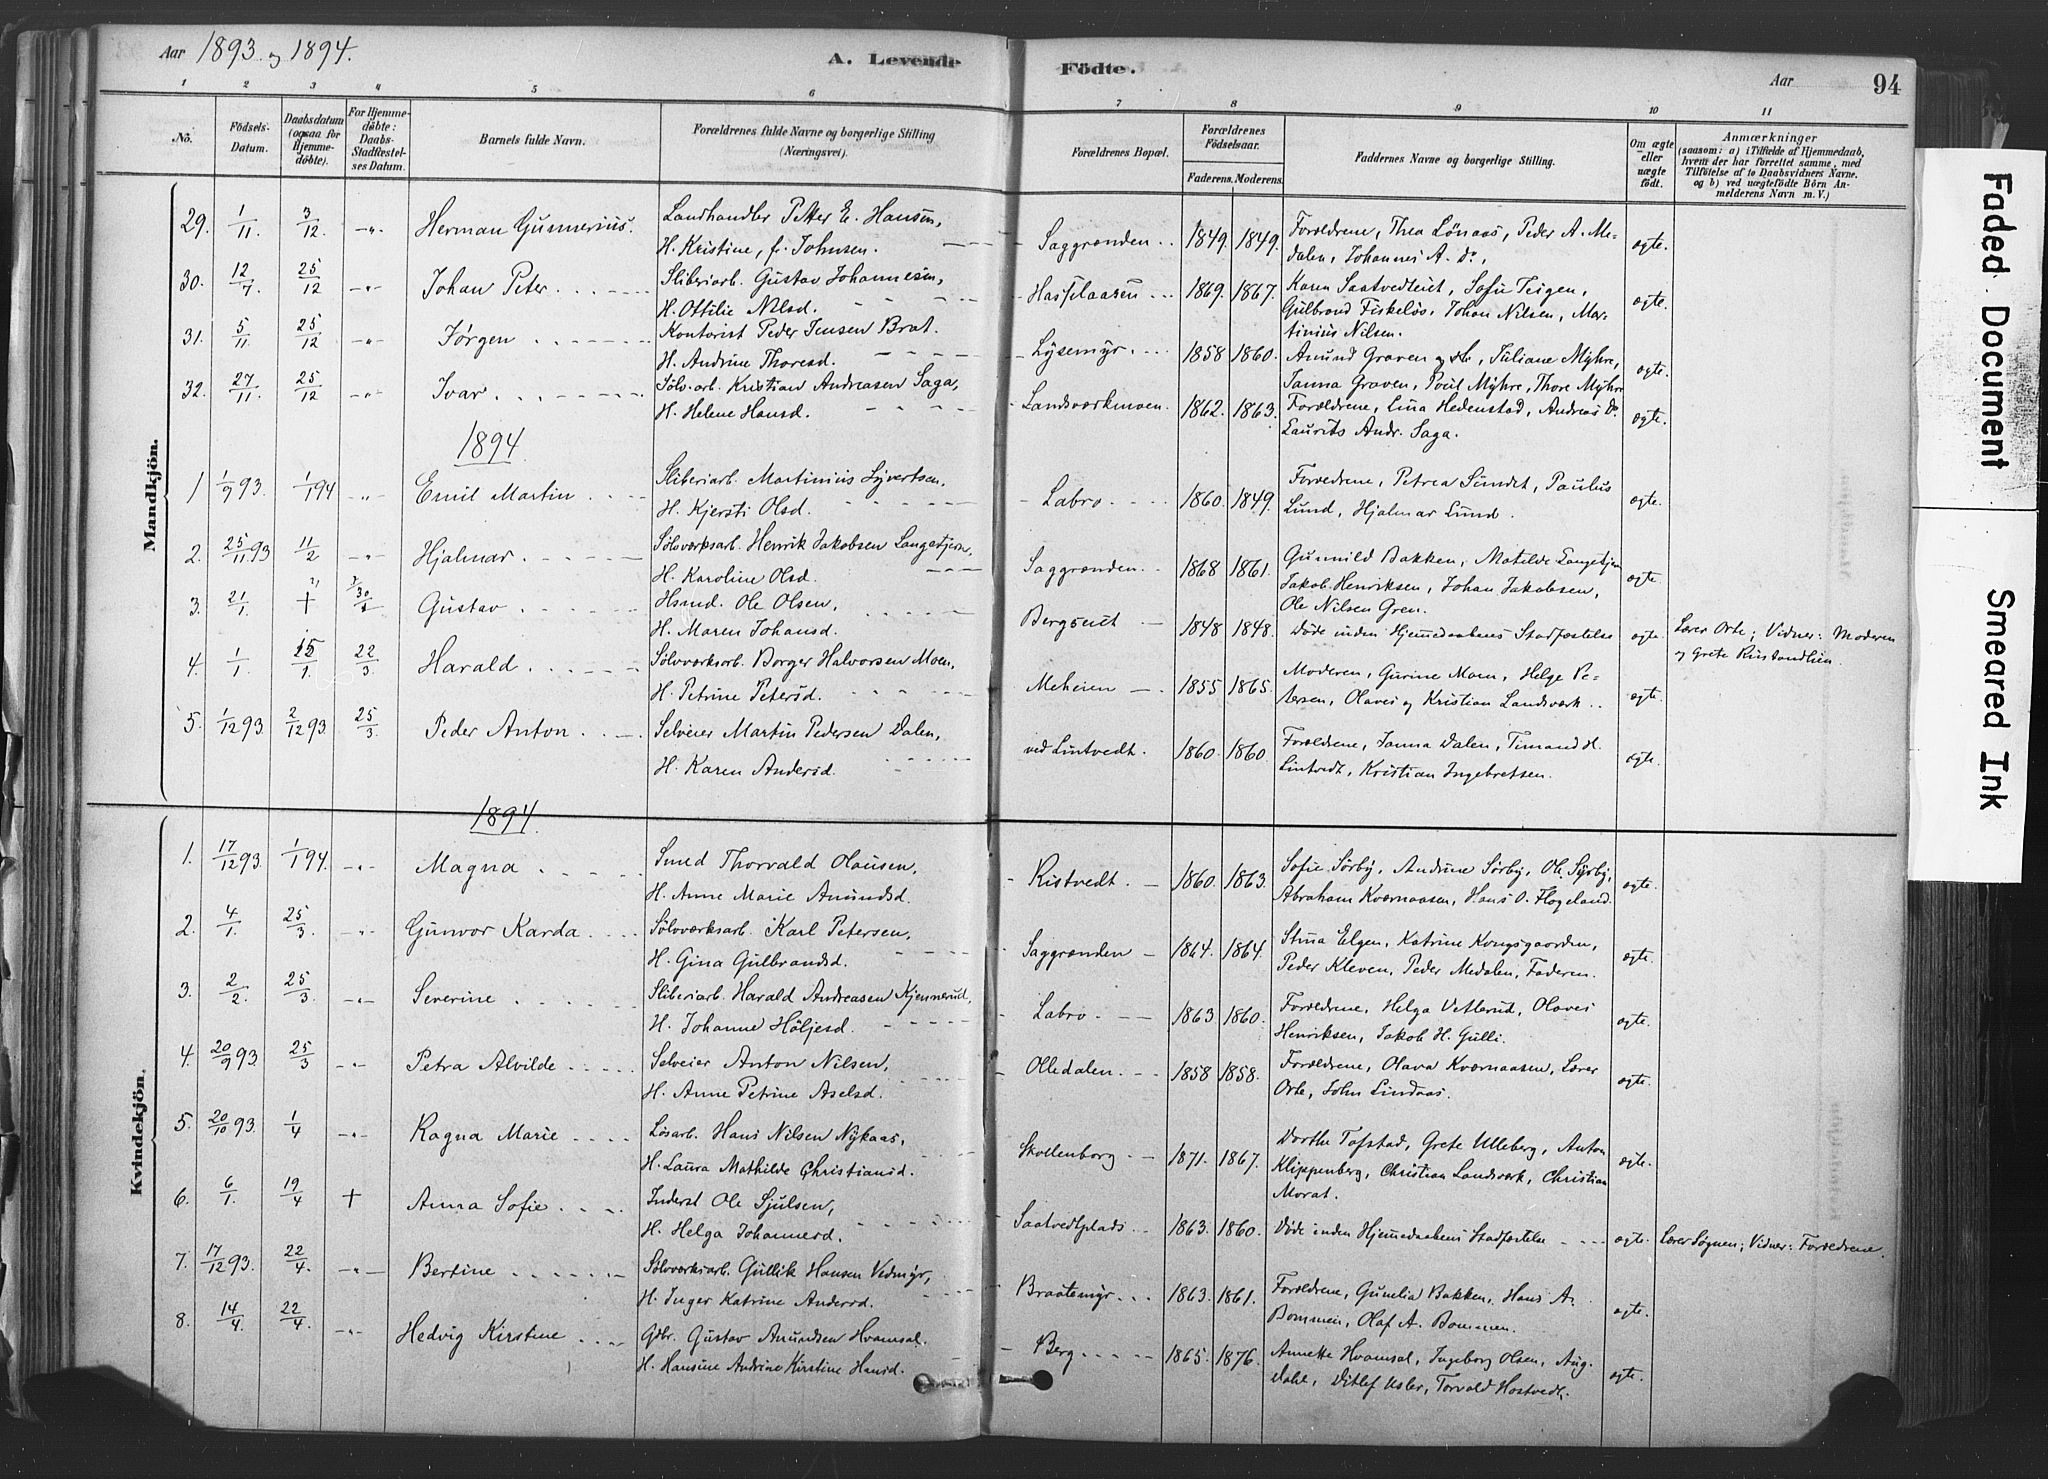 Aar 1893 og 1894.
A. Levende Födte.
Aar 94
1 2 3 4 5 6 7 8 9 10 11
No. Födsels-Datum. Daabsdatum (ogsaa for Hjemmedøbte). For Hjemmedøbte: Daabs-Stadfæstelses Datum. Barnets fulde Navn. Forældrenes fulde Navne og borgerlige Stilling (Næringsvei). Forældrenes Bopæl. Forældrenes Födselsaar. Faderens. Moderens. Faddernes Navne og borgerlige Stilling. Om ægte eller uægte födt. Anmærkninger (saasom: a) i Tilfælde af Hjemmedaab, hvem der har forrettet samme, med Tilföielse af to Daabsvidners Navne. og b) ved uægtefödte Börn Anmelderens Navn m. V.)
Mandkjön.
29. 1/11. 3/12 -"- Herman Gunnerius. Landhandler Petter E. Hansen, H. Kristine, f. Johnsen. Saggrenden 1849. 1849. Forældrene, Thea Lönaas, Peder A. Medalen, Johannes A. Do, ægte.
30. 12/7. 25/12 -"- Johan Peter Sliberiarb. Gustav Johannesen, H. Ottilie Nilsd. Hasselaasen 1869. 1867. Karen Saatvedteiet, Sofie Teigen, Gulbrand Fiskelös, Johan Nilsen, Martinius Nilsen. ægte
31. 5/11 25/12 -"- Jørgen Kontorist Peder Jensen Brat. H. Andrine Thoresd. Lysemyr 1858 1860. Amund Graven og Do, Juliane Myhre, Janna Graven, Poul Myhre, Thore Myhre ægte.
32. 27/11. 25/12 -"- Ivar Sölvarb. Kristian Andreasen Saga, H. Helene Hansd. Landsverkmoen. 1862. 1863. Forældrene, Lina Hedenstad, Andreas Do. Laurits Andr. Saga. ægte.
1894
1 1/9 93. 1/1 94 -"- Emil Martin Sliberiarb. Martinius Syvertsen, H. Kjersti Olsd. Labro 1860. 1849. Forældrene, Petrea Sundet, Paulus Lund, Hjalmar Lund. ægte.
2. 25/11 93 11/2 -"- Hjalmar Sölvverksarb. Henrik Jakobsen Langetjern, H. Karoline Olsd. Saggrenden 1868 1861. Gunnild Bakken, Matilde Langetjern Jakob Henriksen, Johan Jakobsen, Ole Nilsen Gren. ægte.
3. 21/1. + 30/1 Gustav Hsmd. Ole Olsen, H. Maren Johansd. Bergseiet 1848 1848. Döde inden Hjemmedaabens Stadfæstelse ægte Lærer Orte; Vidner: Moderen og Grete Ristandlien.
4. 1/1 15/1. 22/3. Harald Sölvverksarb. Borger Halvorsen Moen, H. Petrine Petersd. Meheien 1855 1865. Moderen, Gurine Moen, Helge Petersen, Olaves og Kristian Landsverk ægte.
5. 1/12 93 2/12 93. 25/3. Peder Anton Selveier Martin Pedersen Dalen, H. Karen Andersd. ved Lintvedt. 1860. 1860. Forældrene, Janna Dalen, Timand H. Lintvedt, Kristian Ingebretsen. ægte.
Kvindekjön.
1894
1. 17/12 93. 1/1 94. -"- Magna Smed Thorvald Olausen, H. Anne Marie Amundsd. Kistvedt. 1860. 1863. Sofie Sörby, Andrine Sörby, Ole Sörby, Abraham Kvernaasen, Hans O. Flogeland. ægte.
2. 4/1. 25/3. -"- Gunvor Karda Sölvværksarb. Karl Petersen, H. Gina Gulbrandsd. Saggrenden 1864. 1864. Stina Elgen, Katrine Kongsgaarden, Peder Kleven, Peder Medalen, Faderen. ægte.
3. 2/2. 25/3 -"- Severine Sliberiarb. Harald Andreasen Kjennerud, H. Johanne Höljesd. Labro. 1863 1860. Forældrene, Helga Vetterud, Olaves Henriksen, Jakob H. Gulli. ægte.
4. 20/9 93 25/3 -"- Petra Alvilde Selveier Anton Nilsen, H. Anne Petrine Axelsd. Olledalen. 1858 1858. Forældrene, Olava Kvernaasen, Lærer Orte, John Lindaas. ægte.
5. 20/10 93. 1/4 -"- Ragna Marie Løsarb. Hans Nilsen Nykaas, H. Laura Mathilde Christiansd. Skollenborg 1871. 1867. Dorthe Tofstad, Grete Ulleberg, Anton Klippenberg, Christian Landsverk, Christian Morat. ægte.
6. 6/1. 19/4 + Anna Sofie Inderst Ole Sjulsen, H. Helga Johannesd. Saatvedtplads 1863. 1860. Döde inden Hjemmedaabens Stadfæstelse ægte. Lærer Søgnen; Vidner: Forældrene.
7. 17/12 93. 22/4. -"- Bertine Sölvverksarb. Gullik Hansen Vedmyr, H. Inger Katrine Andersd. Braatemyr 1863. 1861. Forældrene, Gunelia Bakken, Hans A. Bommen, Olaf A. Bommen. ægte.
8. 14/4 22/4. -"- Hedvig Kirstine Gdbr. Gustav Amundsen Hvamsal. H. Hansine Andrine Kirstine Hansd. Berg. 1865. 1876. Annette Hvamsal, Ingeborg Olsen, Aug. Dahl, Ditlef Usler, Torvald Hostvedt. ægte.
Faded Document
Smeared Ink